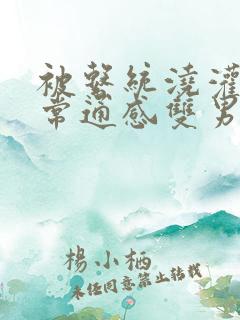 被繫統澆灌
常通感雙男
楊小栖
未經同意禁止轉載